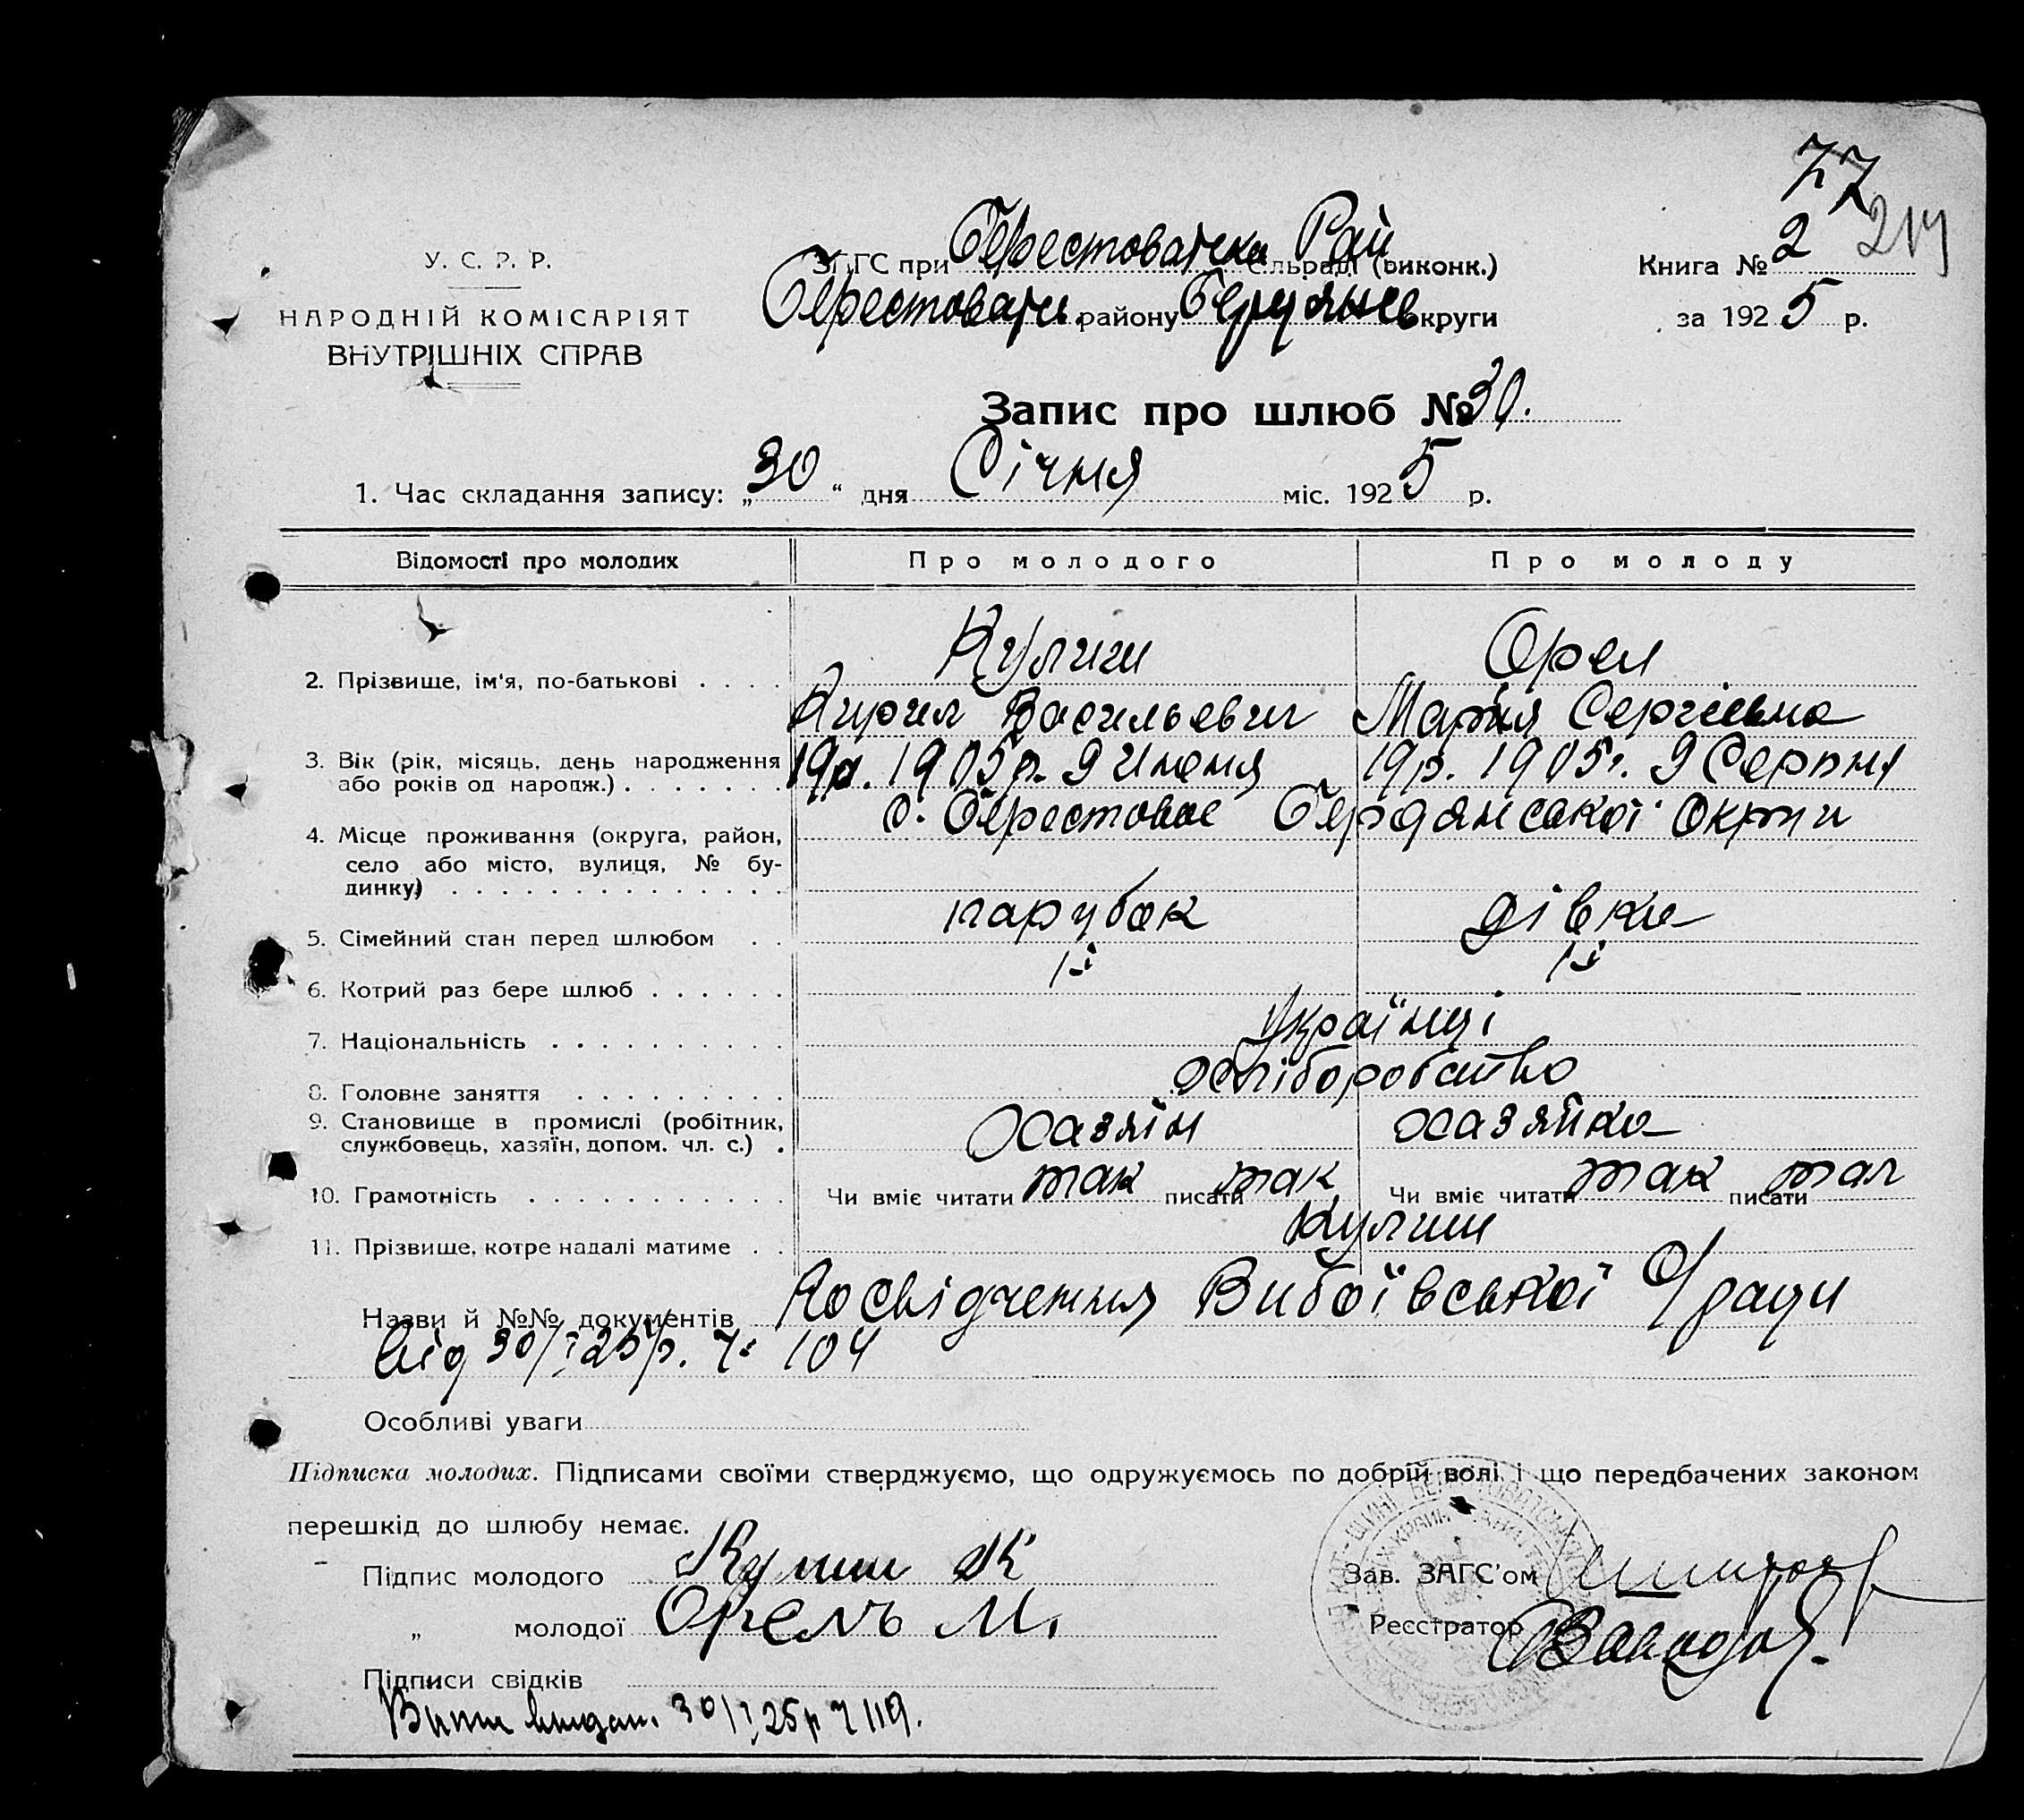 77
214
У. С. Р. Р.
НАРОДНІЙ КОМІСАРІЯТ
ВНУТРІШНІХ СПРАВ
ЗАГС при Берестоватска Рай сільраді (виконк.)
Берестоватс. району Бердянсь округи
Книга № 2
за 1925 р.
Запис про шлюб № 30.
1. Час складання запису: „30“ дня Січня міс. 1925 р.
Відомості про молодих Про молодого Про молоду
Кулиш Орел
2. Прізвище, ім'я, по-батькові . . . . Кирил Васильевич Мария Сергіевна
3. Вік (рік, місяць, день народження 19р. 1905р. 9 Июня 19р. 1905р. 9 Серпня
або років од народж.) . . . . . . .
с. Берестовое Бердянської Округи
4. Місце проживання (округа, район,
село або місто, вулиця, № бу-
динку) . . . . . . . . . . . . . .
5. Сімейний стан перед шлюбом . . парубок дівка
6. Котрий раз бере шлюб . . . . . . 1-й 1-й
7. Національність . . . . . . . . . . Українці
8. Головне заняття . . . . . . . . . хліборобство
9. Становище в промислі (робітник, Хазяїн хазяйка
службовець, хазяїн, допом. чл. с.) .
10. Грамотність . . . . . . . . . . . Чи вміє читати так писати так Чи вміє читати так писати так
11. Прізвище, котре надалі матиме . . Кулиш
Назви й №№ документів Посвідчення Вибоївської С/ради
від 30/I 25р. ч. 104
Особливі уваги
Підписка молодих. Підписами своїми стверджуємо, що одружуємось по добрій волі і що передбачених законом
перешкід до шлюбу немає.
Підпис молодого Кулиш К
„ молодої Орелъ М.
Зав. ЗАГС'ом
Реєстратор
Підписи свідків
Витяг видан. 30/I 25р ч 119.